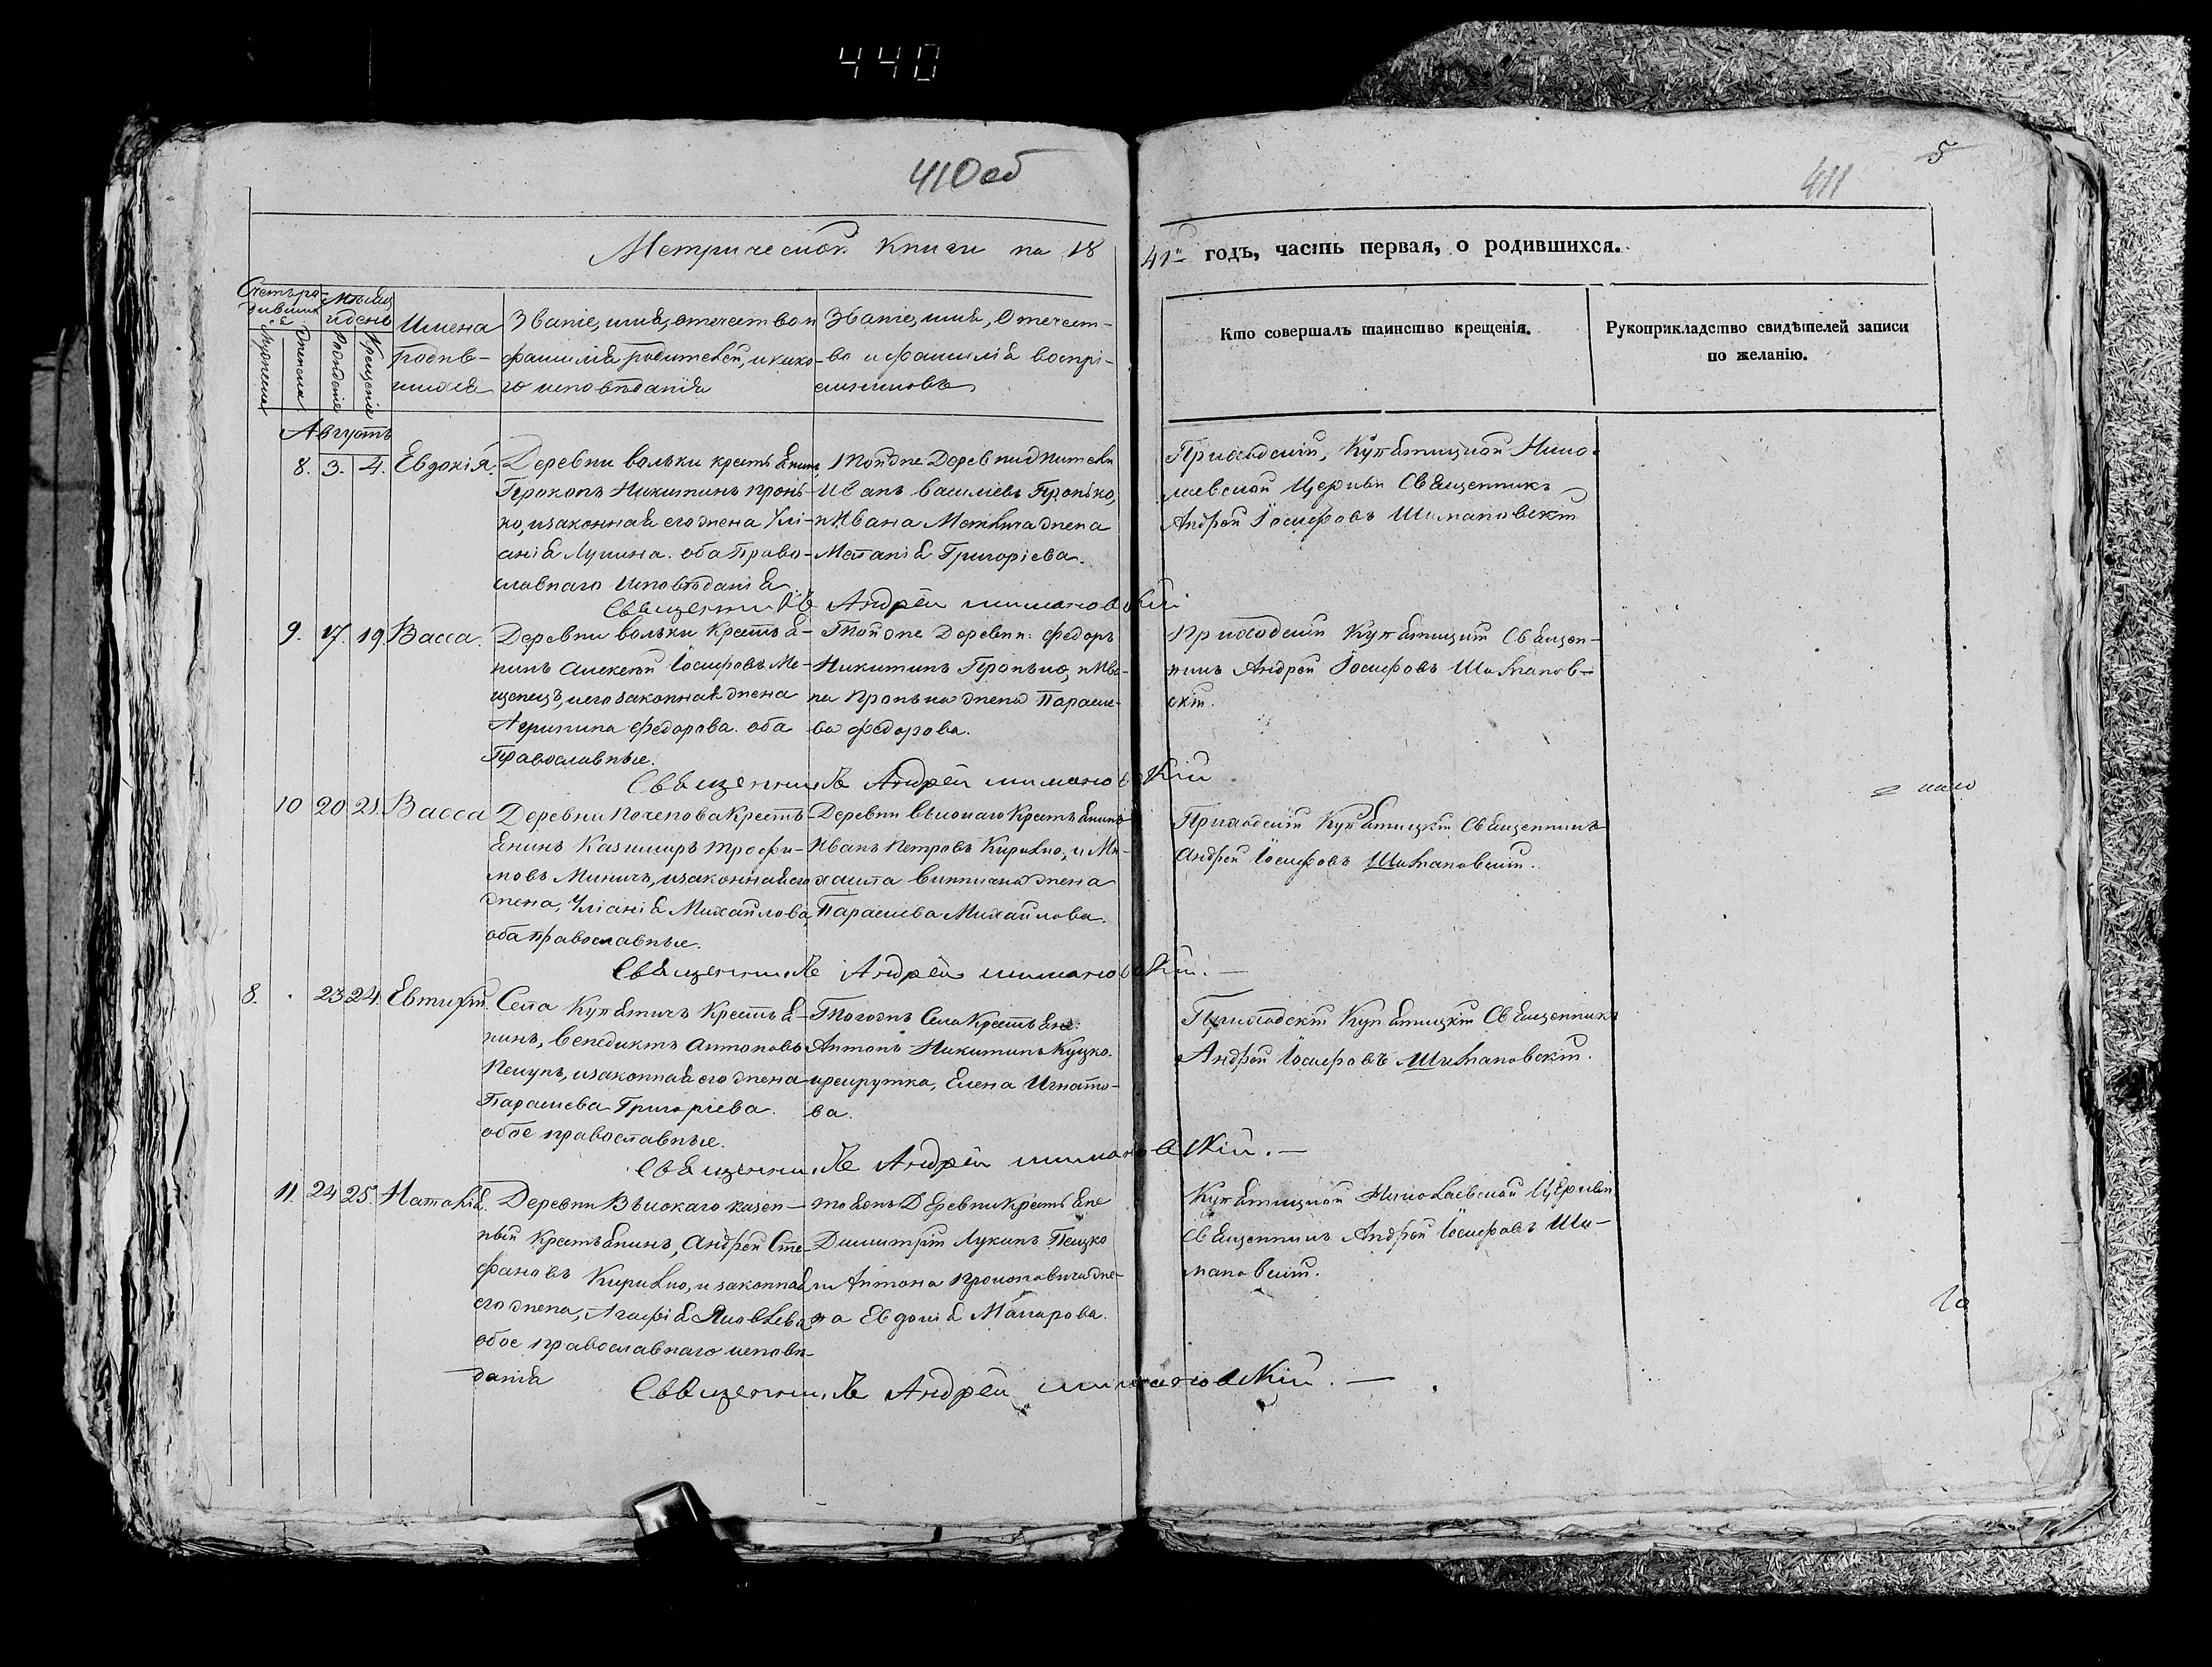 440
410 об
411
5
Метрической Книги на 18
41го годъ, часть первая, о родившихся.
Счетъ ро-
дивших
ся
Мѣсяц
и день
Мужеска
Женска
Рожденіе
Крещеніе
Имена
родив-
шихся
Званіе, имя, отечество и
фамилія родителей, и како-
го исповѣданія
Званіе, имя, Отечест-
во и фамилія воспрі-
емниковъ
Кто совершалъ таинство крещенія.
Рукоприкладство свидѣтелей записи
по желанію.
Августъ
8. 3. 4. Евдокія.
Деревни вольки крестьянинъ
Прокопъ Никитинъ пронь-
ко, и законная его жена Улі-
анія Лукина. оба Право-
славнаго Исповѣданія
Тойже Деревни жители
Иванъ васильевъ Пронько,
и Ивана жена
Меланія Григоріева.
Приходскій, Купятицкой Нико-
лаевской Церкви Священникъ
Андрей Іосифовъ Шимановскій
Священникъ Андрей шимановскій
9. 17. 19. Васса.
Деревни вольки Крестья-
нинъ алексѣй Іосифовъ Ме-
щенецъ, и его законная жена
Агрипина Федорова. оба
Православные.
Тойже Деревни: Федоръ
Никитинъ Пронько, и Ива-
на Пронька жена Параске-
ва Федорова.
Приходскій Купятицкій Священ-
никъ Андрей Іосифовъ Шиманов-
скій.
Священникъ Андрей шимановскій
10 20. 21. Васса
Деревни Почепова Кресть-
янинъ Казимиръ трофи-
мовъ Миничъ, и законная его
жена, Уліанія Михайлова,
оба православные.
Деревни высокаго Крестьянинъ
Иванъ Петровъ Кирилко, и Ми-
хаила жена
Параскева Михайлова.
Приходскій Купятицкій Священникъ
Андрей Іосифовъ Шимановскій.
Священникъ Андрей шимановскій. —
8. 23. 24. Евтихій.
Села Купятичъ Крестья-
нинъ, венедиктъ антоновъ
и законная его жена
Параскева Григоріева.
обое православные.
Тогожъ Села Крестьяне:
Антонъ Никитинъ Куцко.
и рекрутка, Елена Игнато-
ва.
Приходскій Купятицкій Священникъ
Андрей Іосифовъ Шимановскій.
Священникъ Андрей шимановскій. —
11. 24 25. Наталія.
Деревни Высокаго казен-
ный Крестьянинъ, Андрей Сте-
фановъ Кирилко, и законная
его жена, Агафія Яковлева
обое православнаго исповѣ-
данія
тояжъ Деревни Крестьяне
Димитрій Лукинъ
и Антона Прокоповича же-
на Евдокія Макарова.
Купятицкой Николаевской Церкви
Священникъ Андрей Іосифовъ Ши-
мановскій.
Священникъ Андрей шимановскій. —